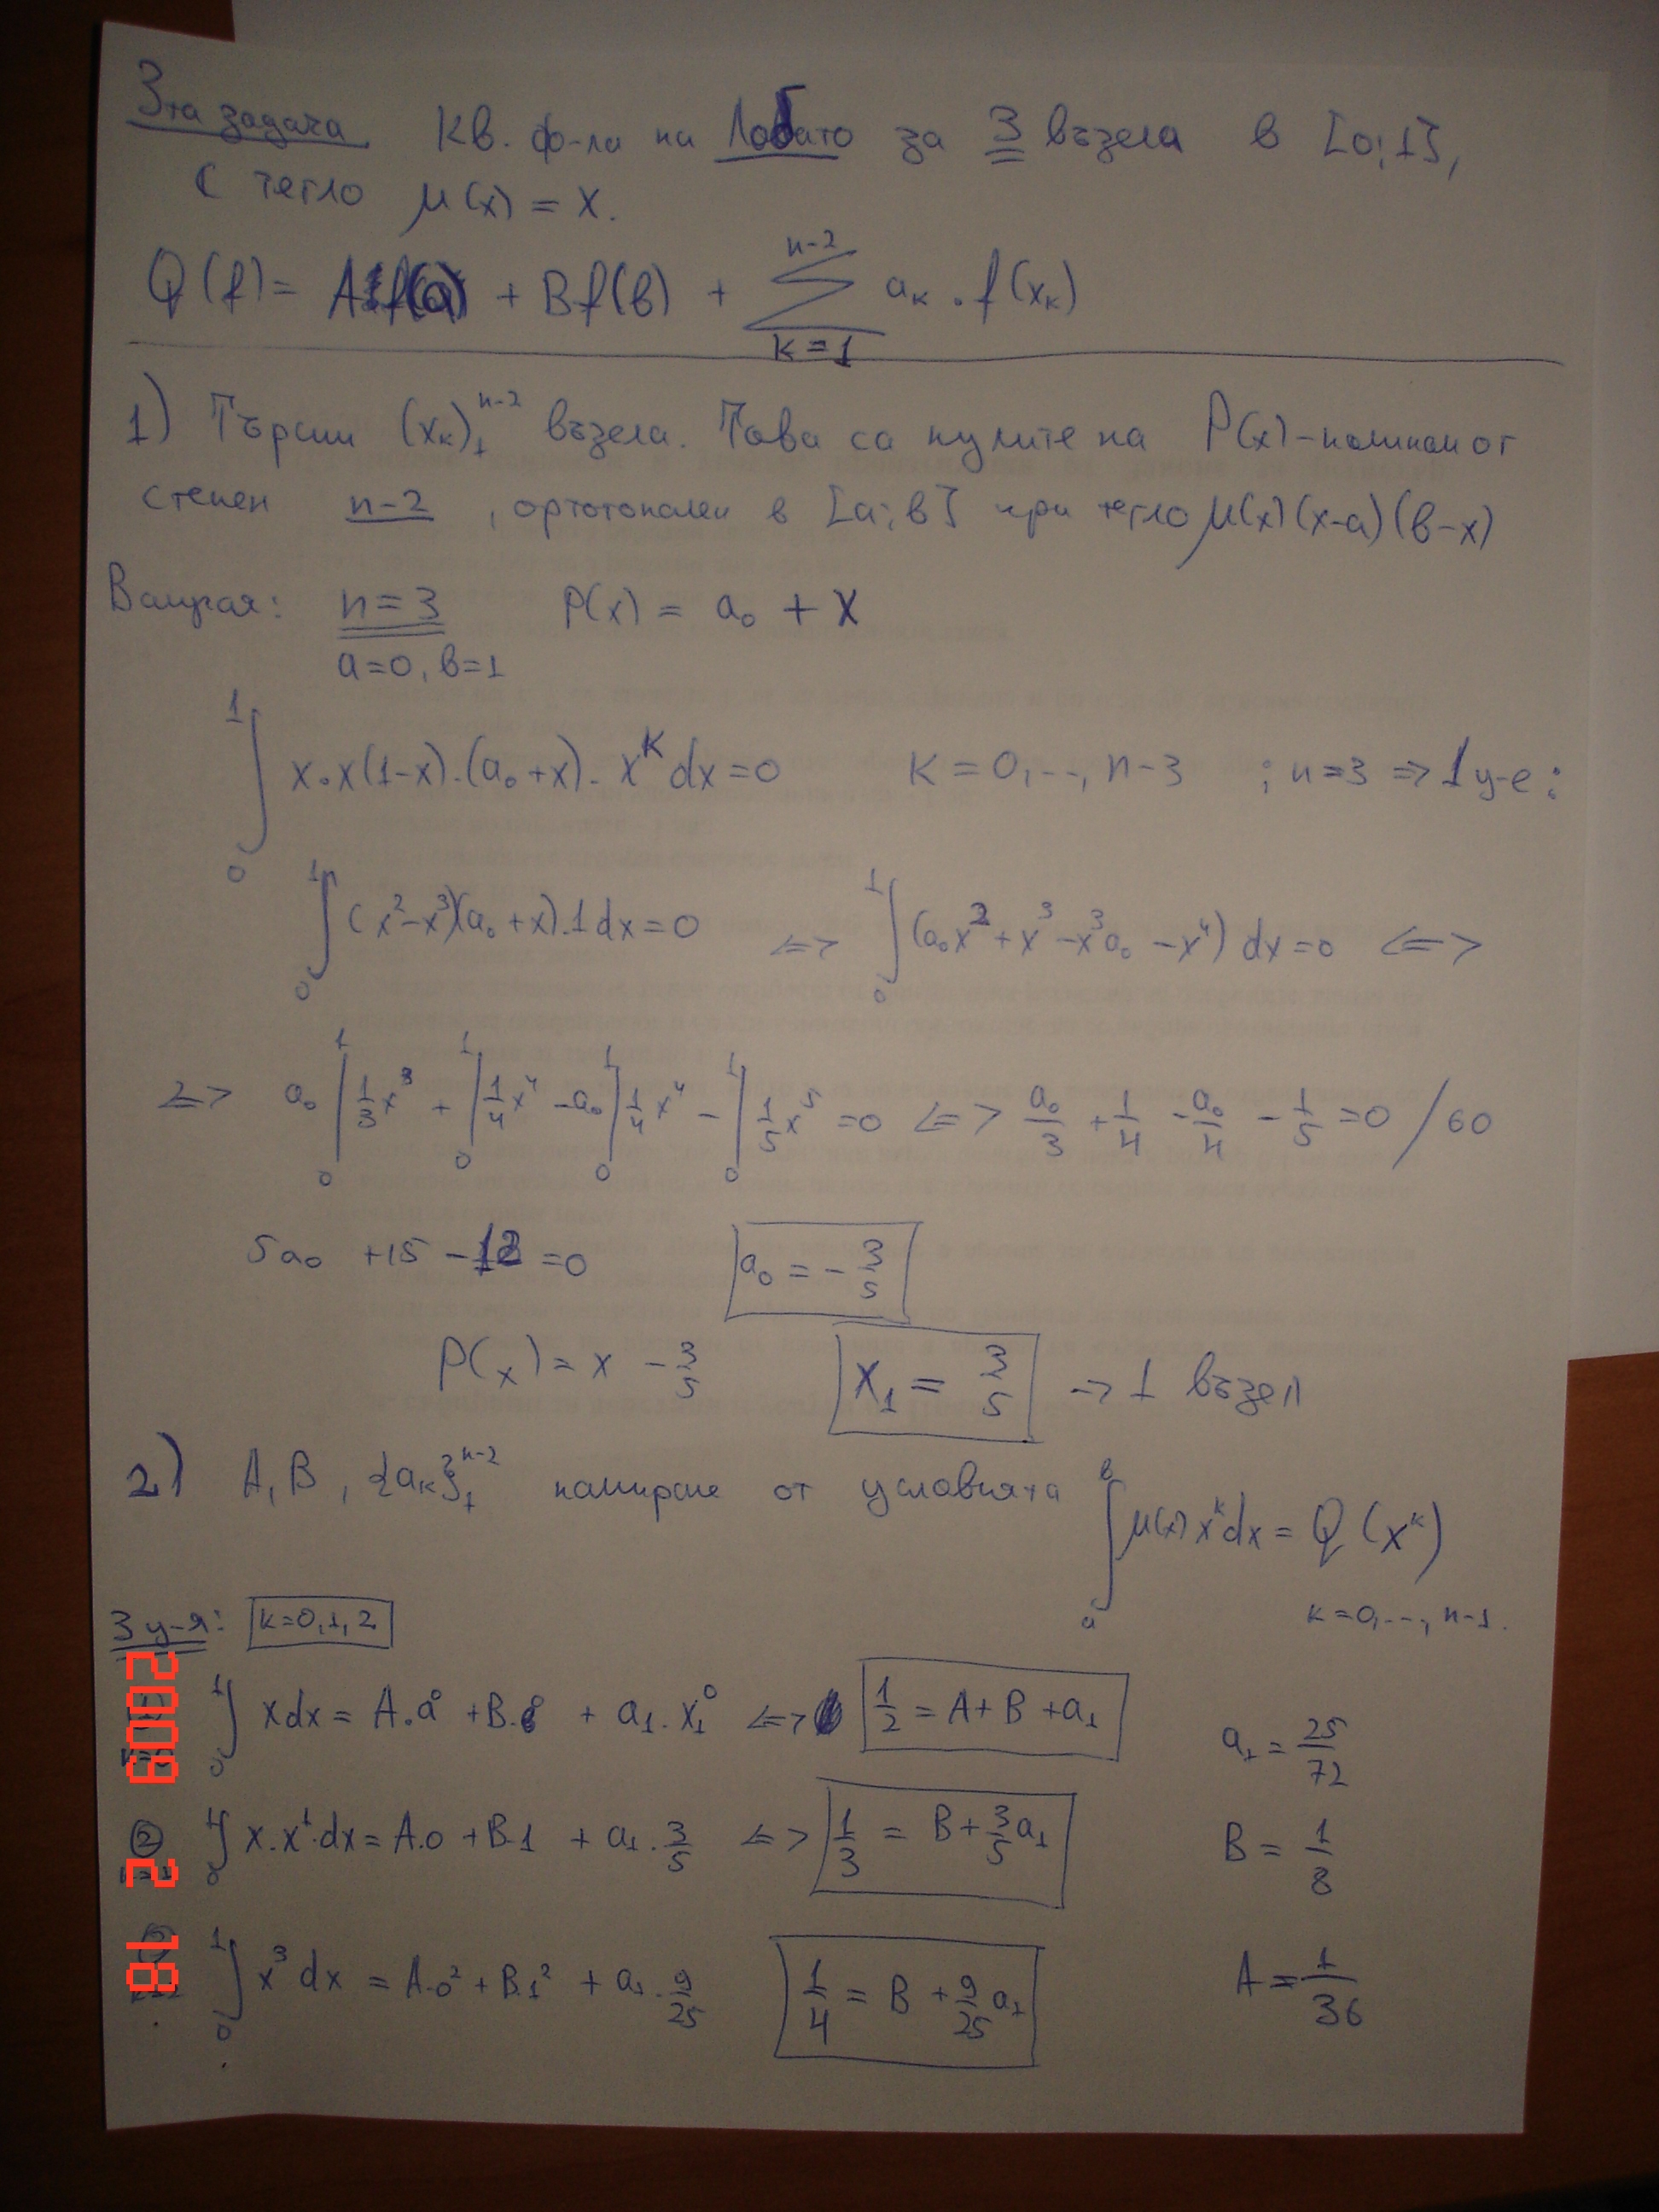 3та задача Кв. ф-ла на Лобато за 3 възела в [0;1],
с тегло μ(x) = x.
Q(f) = Af(a) + Bf(b) + ∑_{k=1}^{n-2} a_k . f(x_k)
1) Търсим (x_k)_1^{n-2} възела. Това са нулите на P(x) - полином от
степен n-2, ортогонален в [a;b] при тегло μ(x)(x-a)(b-x)
В случая: n=3 P(x) = a₀ + x
a=0, b=1
∫₀¹ x.x(1-x).(a₀+x).x^k dx = 0 k = 0,..., n-3 ; n=3 => 1 у-е:
∫₀¹ (x²-x³)(a₀+x).1dx = 0 <=> ∫₀¹ (a₀x² + x³ - x³a₀ - x⁴) dx = 0 <=>
<=> a₀ |₀¹ 1/3 x³ + |₀¹ 1/4 x⁴ - a₀ |₀¹ 1/4 x⁴ - |₀¹ 1/5 x⁵ = 0 <=> a₀/3 + 1/4 - a₀/4 - 1/5 = 0 /60
5a₀ + 15 - 12 = 0 a₀ = - 3/5
P(x) = x - 3/5 x₁ = 3/5 -> 1 възел
2) A, B, {a_k}_1^{n-2} намираме от условията ∫_a^b μ(x) x^k dx = Q(x^k)
3 у-я: k=0,1,2 k=0,..., n-1.
∫₀¹ xdx = A.a⁰ + B.b⁰ + a₁.x₁⁰ <=> 1/2 = A + B + a₁ a₁ = 25/72
② ∫₀¹ x.x¹.dx = A.0 + B.1 + a₁.3/5 <=> 1/3 = B + 3/5 a₁ B = 1/8
∫₀¹ x³dx = A.0² + B.1² + a₁.9/25 1/4 = B + 9/25 a₁ A = 1/36
2009 2 18